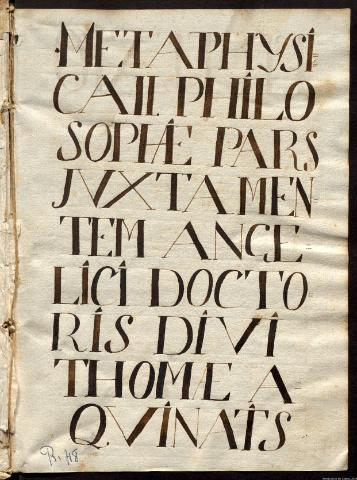 METAPHYSI
CAII. PHILO
SOPHÆ PARS
JUXTA MEN
TEM ANGE
LICI DOCTO
RIS DIVI
THOMÆ A
QVINATIS
B. 48